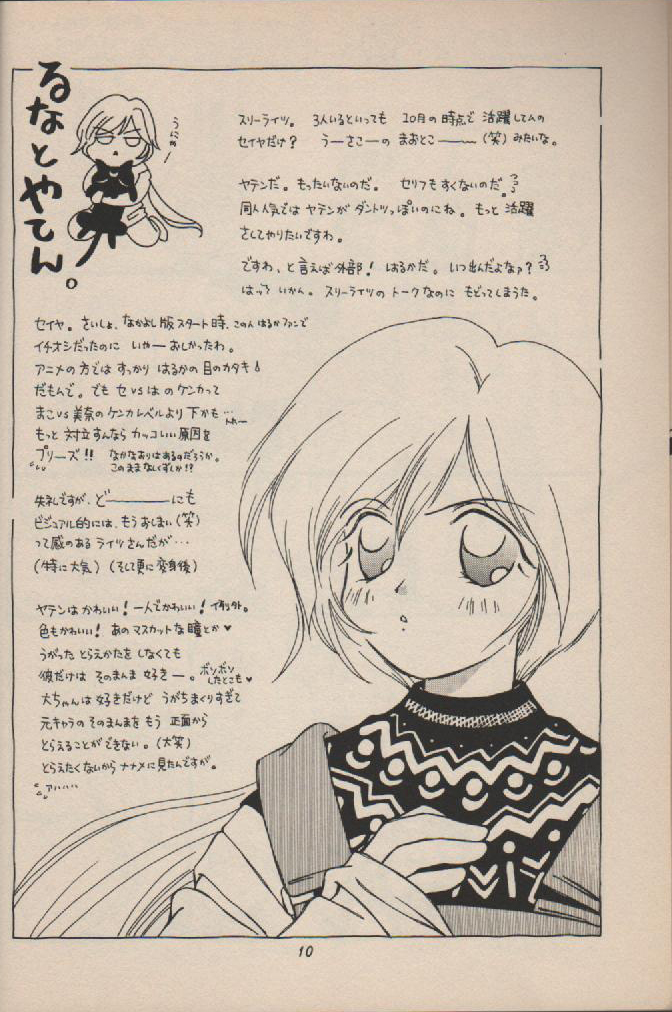 るなとやてん。
うにゅー
スリーライツ。 3人いるといっても 10月の時点で 活躍してんの
セイヤだけ? うーさこーの まおとこ――― (笑) みたいな。
ヤテンだ。もったいないのだ。 セリフもすくないのだ。
同人気では ヤテンが ダントツっぽいのにね。もっと 活躍
さしてやりたいですわ。
ですわ、と言えば外部! はるかだ。 いつ出んだよなァ?
はっ? いかん。スリーライツの トークなのに もどってしまうた。
セイヤ。さいしょ、なかよし版スタート時、このんはるかファンで
イチオシだったのに いやーおしかったわ。
アニメの方では すっかり はるかの 目のカタキ
だもんで。でも セvsはのケンカって
まこvs美奈のケンカレベルより 下かも…
もっと 対立すんなら カッコいい原因を
プリーズ!! なかなおりはあるのだろうか。
このままなしくずしか!?
失礼ですが、ど―――にも
ビジュアル的には、もうおしまい(笑)
って感のある ライツさんだが…
(特に大気) (そして更に変身後)
ヤテンは かわいい! 一人でかわいい! イ列外。
色もかわいい! あの マスカットな瞳とか♥
うがった とらえかたを しなくても
彼だけは そのまんま 好きー。 ボソボソ
したとこも♥
大ちゃんは 好きだけど うがちまくりすぎて
元キャラの そのまんまを もう 正面から
とらえることが できない。(大笑)
とらえたくないから ナナメに見たんですが。
アハハハ
10